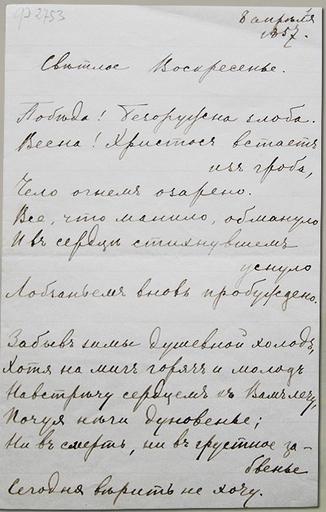 8 апрѣля
1857.
Свѣтлое Воскресенье.
Побѣда! Безоружна злоба.
Весна! Христосъ встаетъ
изъ гроба,
Чело огнемъ озарено.
Все, что манило, обмануло
И въ сердцѣ стихнувшемъ
уснуло
Лобзаньемъ вновь пробуждено.
Забывъ зимы душевной холодъ,
Хотя на мигъ горячъ и молодъ
Навстрѣчу сердцемъ къ Вамъ лечу,
Почуя нѣги дуновенье;
Ни въ смерть, ни въ грустное за-
бвенье
Сегодня вѣрить не хочу.